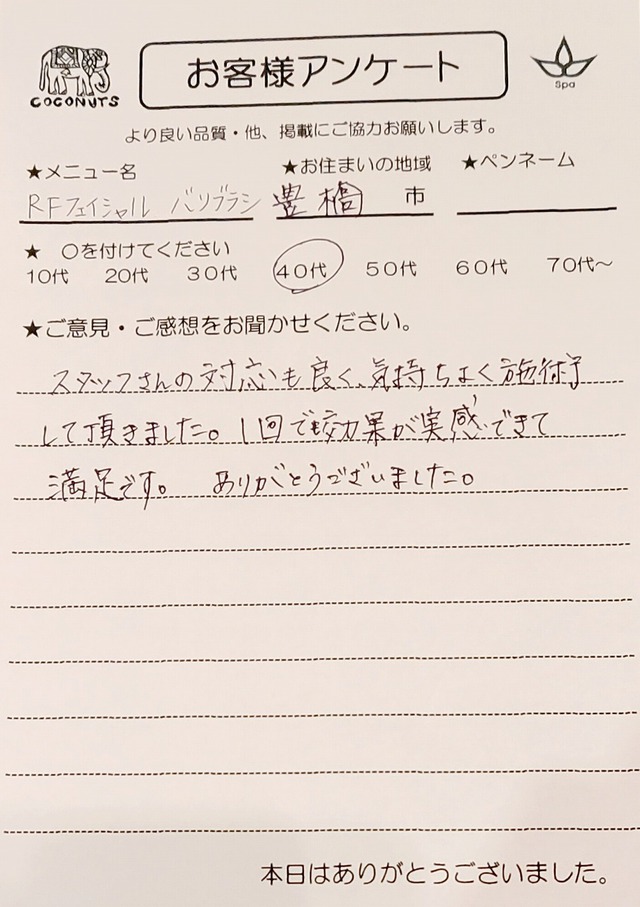 COCONUTS
お客様アンケート
Spa
より良い品質・他、掲載にご協力お願いします。
★メニュー名 ★お住まいの地域 ★ペンネーム
RFフェイシャル バリブラシ 豊橋 市
★ ○を付けてください
10代 20代 30代 40代 50代 60代 70代～
★ご意見・ご感想をお聞かせください。
スタッフさんの対応も良く、気持ちよく施術
して頂きました。1回で効果が実感できて
満足です。 ありがとうございました。
本日はありがとうございました。